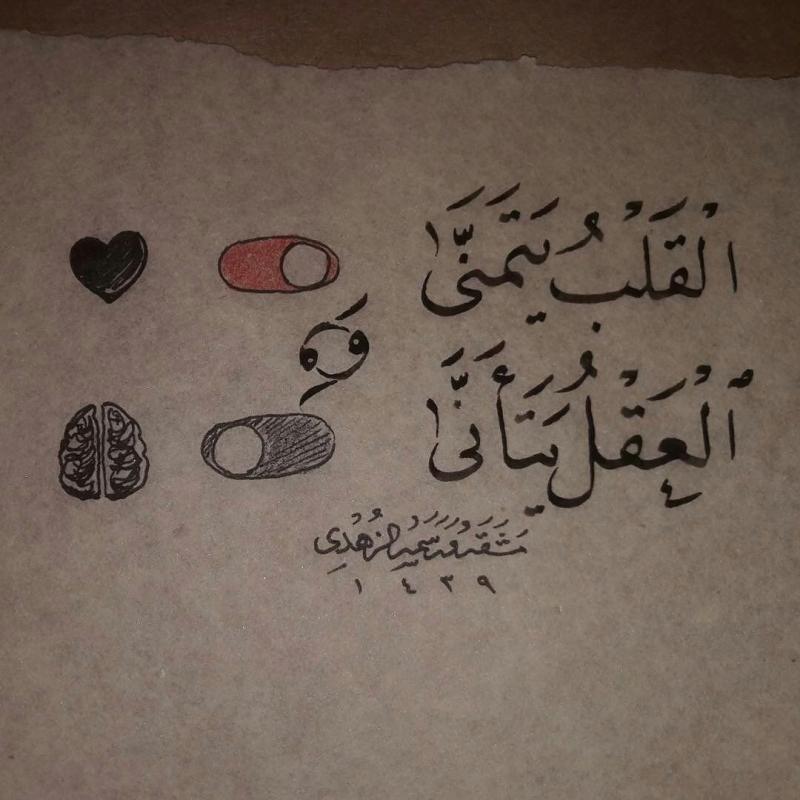 الْقَلبُ يَتَمَنَّىٰ
و
الْعَقْلُ يَتَأَنَّىٰ
مَشَقَهُ سمير الزُهْدِي
١٤٣٩